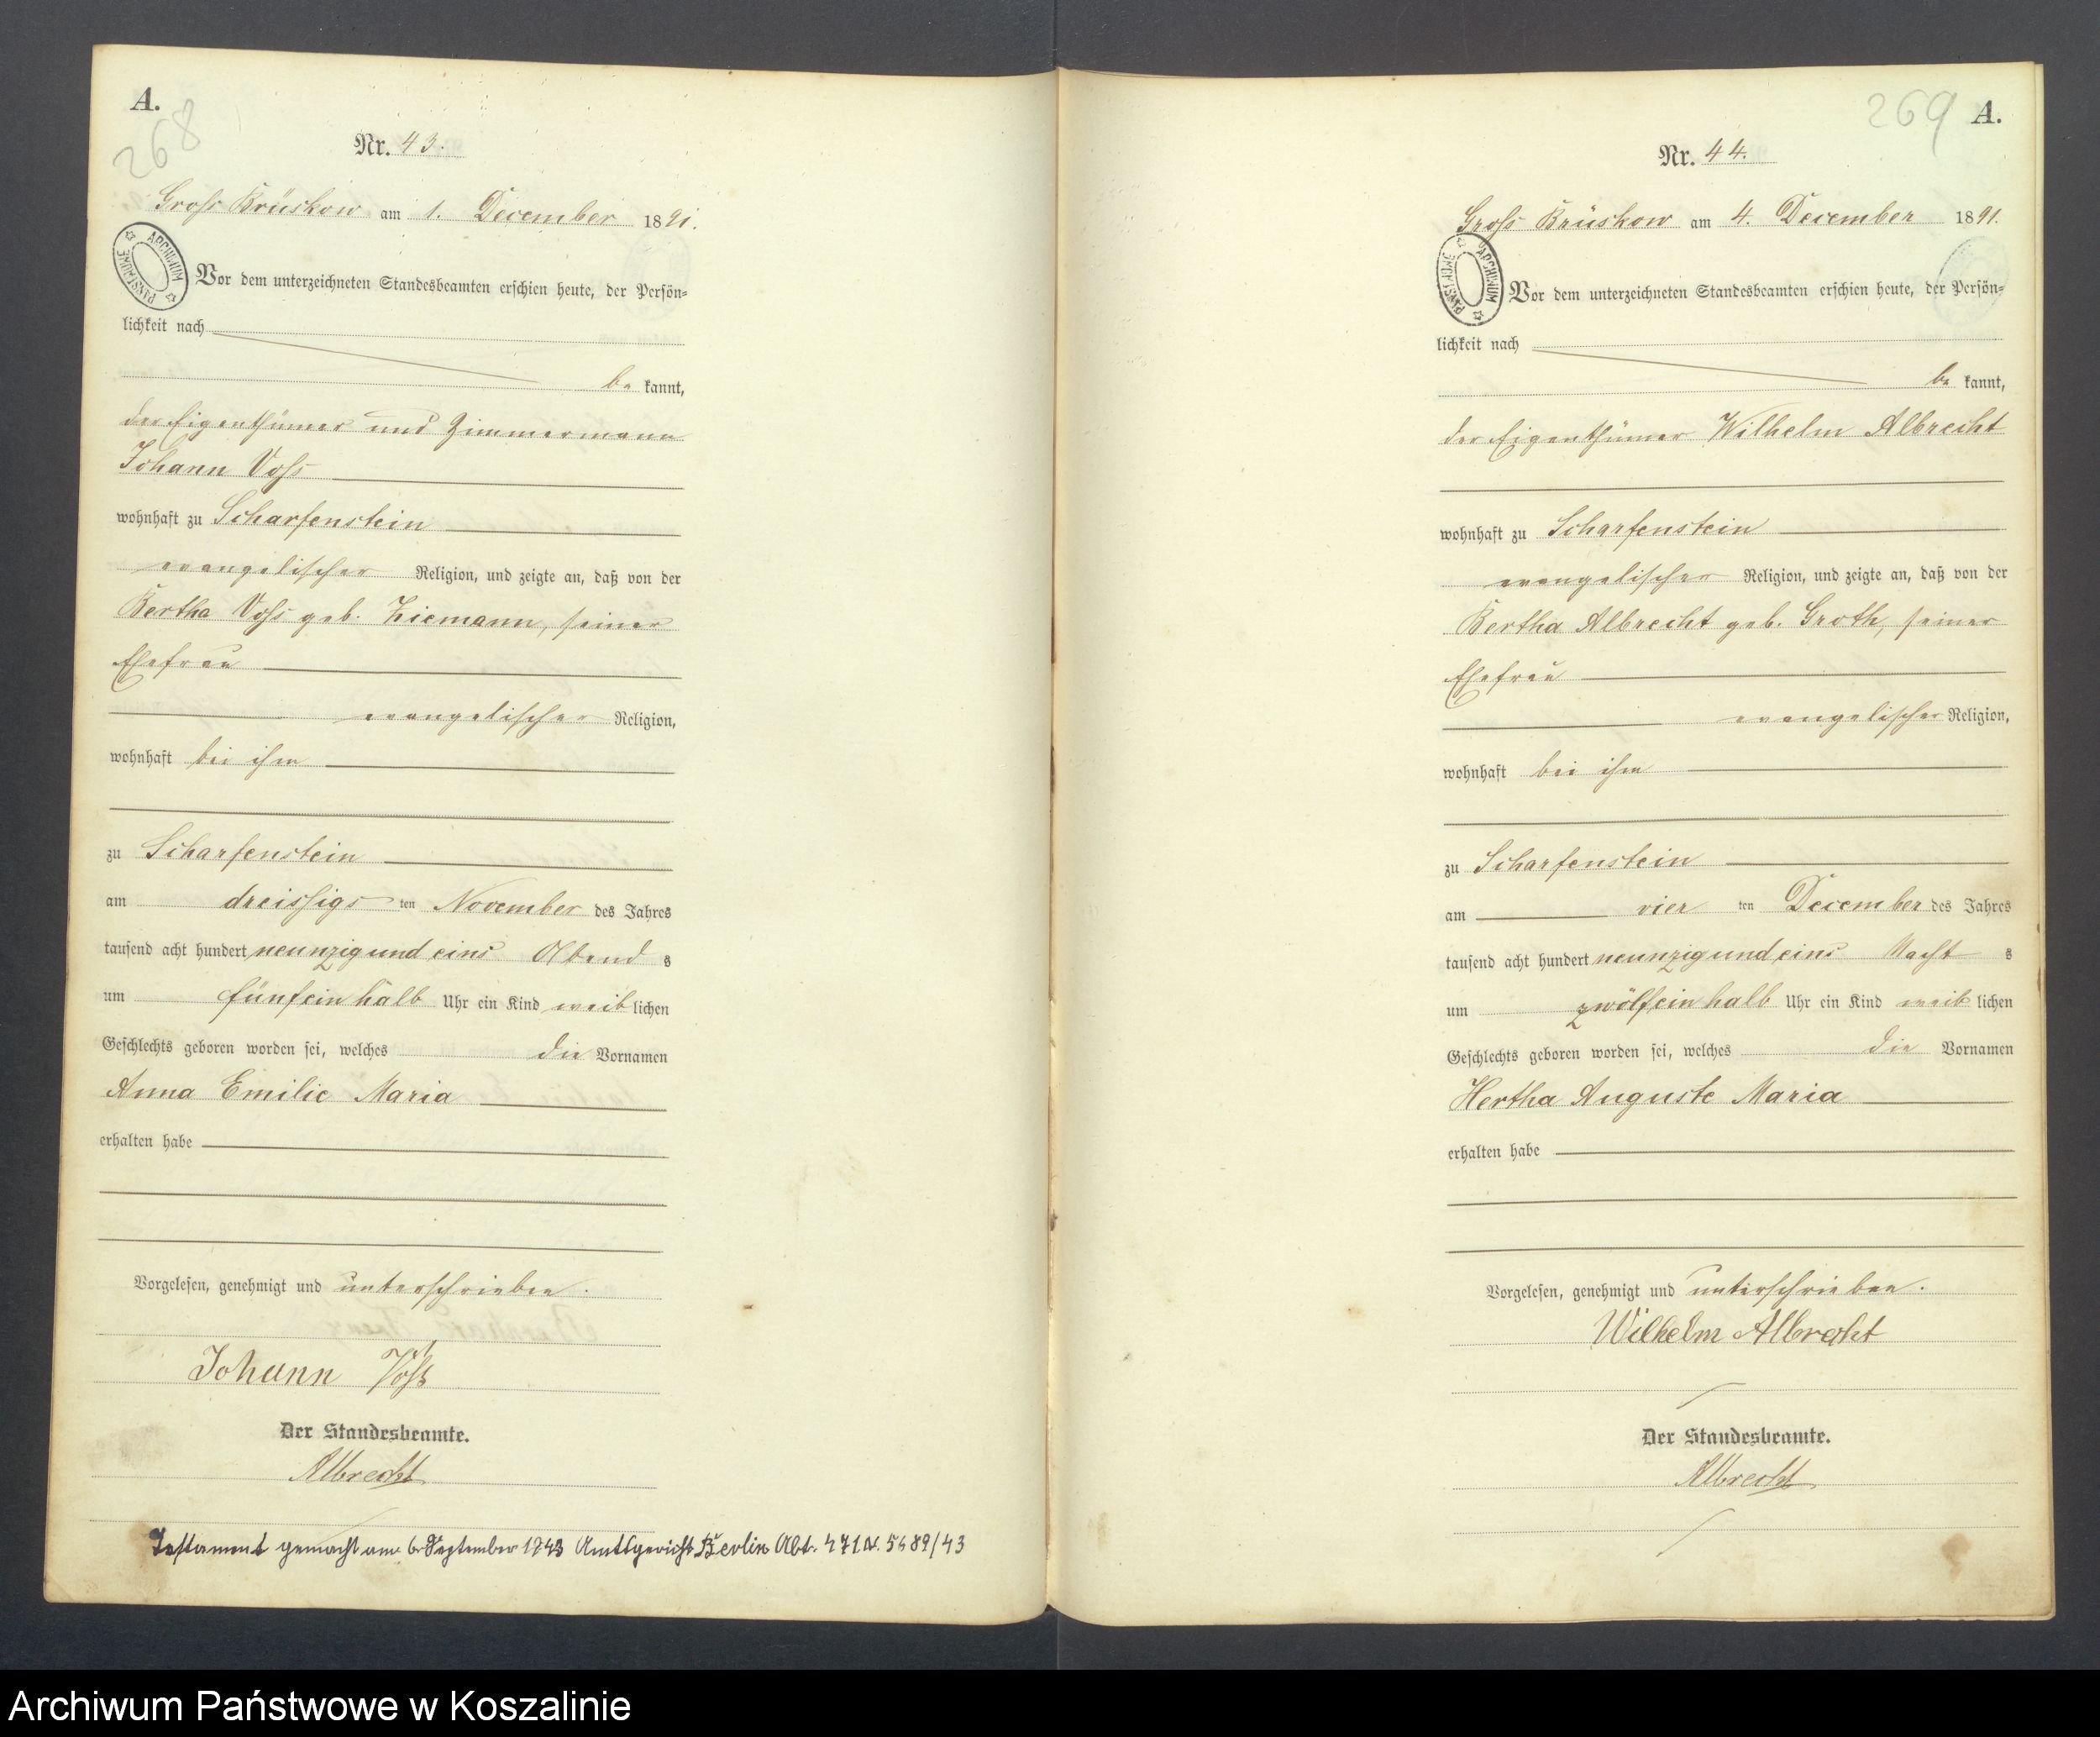 A.
268
Nr. 43.
Gross Brüskow am 1. December 1891.
ARCHIWUM PAŃSTWOWE
Vor dem unterzeichneten Standesbeamten erschien heute, der Persön=
lichkeit nach
be kannt,
der Eigenthümer und Zimmermann
Johann Voss
wohnhaft zu Scharfenstein
evangelischer Religion, und zeigte an, daß von der
Bertha Voss geb. Ziemann, seiner
Ehefrau
evangelischer Religion,
wohnhaft bei ihm
zu Scharfenstein
am dreissigs ten November des Jahres
tausend acht hundert neunzig und eins Abend s
um fünfeinhalb Uhr ein Kind weib lichen
Geschlechts geboren worden sei, welches die Vornamen
Anna Emilie Maria
erhalten habe
Vorgelesen, genehmigt und unterschrieben.
Johann Voß
Der Standesbeamte.
Albrecht
Testament gemacht am 6. September 1943 Amtsgericht Berlin Abt. 471 5689/43
269 A.
Nr. 44.
Gross Brüskow am 4. December 1891.
ARCHIWUM PAŃSTWOWE
Vor dem unterzeichneten Standesbeamten erschien heute, der Persön=
lichkeit nach
be kannt,
der Eigenthümer Wilhelm Albrecht
wohnhaft zu Scharfenstein
evangelischer Religion, und zeigte an, daß von der
Bertha Albrecht geb. Groth, seiner
Ehefrau
evangelischer Religion,
wohnhaft bei ihm
zu Scharfenstein
am vier ten December des Jahres
tausend acht hundert neunzig und eins Nacht s
um zwölfeinhalb Uhr ein Kind weib lichen
Geschlechts geboren worden sei, welches die Vornamen
Hertha Auguste Maria
erhalten habe
Vorgelesen, genehmigt und unterschrieben.
Wilhelm Albrecht
Der Standesbeamte.
Albrecht
Archiwum Państwowe w Koszalinie